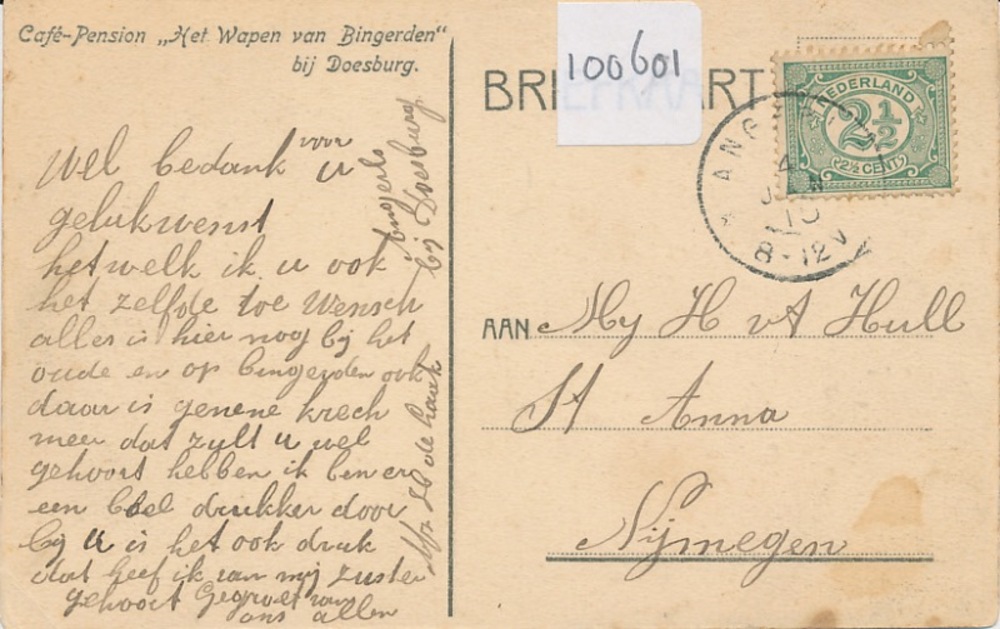 Café-Pension „Het Wapen van Bingerden"
bij Doesburg.
Wel bedank voor u
gelukwenst
hetwelk ik u ook
het zelfde toe wensch
alles is hier nog bij het
oude en op bingerden ook
daar is genene krech
meer dat zult u wel
gehoort hebben ik ben er
een boel drukker door
bij u is het ook druk
dat heef ik van mij zuster
gehoort Gegroet van
ons allen
de Haak
Angerlo
bij Doesburg
100601
BRI ART
NEDERLAND
2½
2½ CENT
ANG
4
10
8-12V
AAN Mej H v A Hull
St Anna
Nijmegen